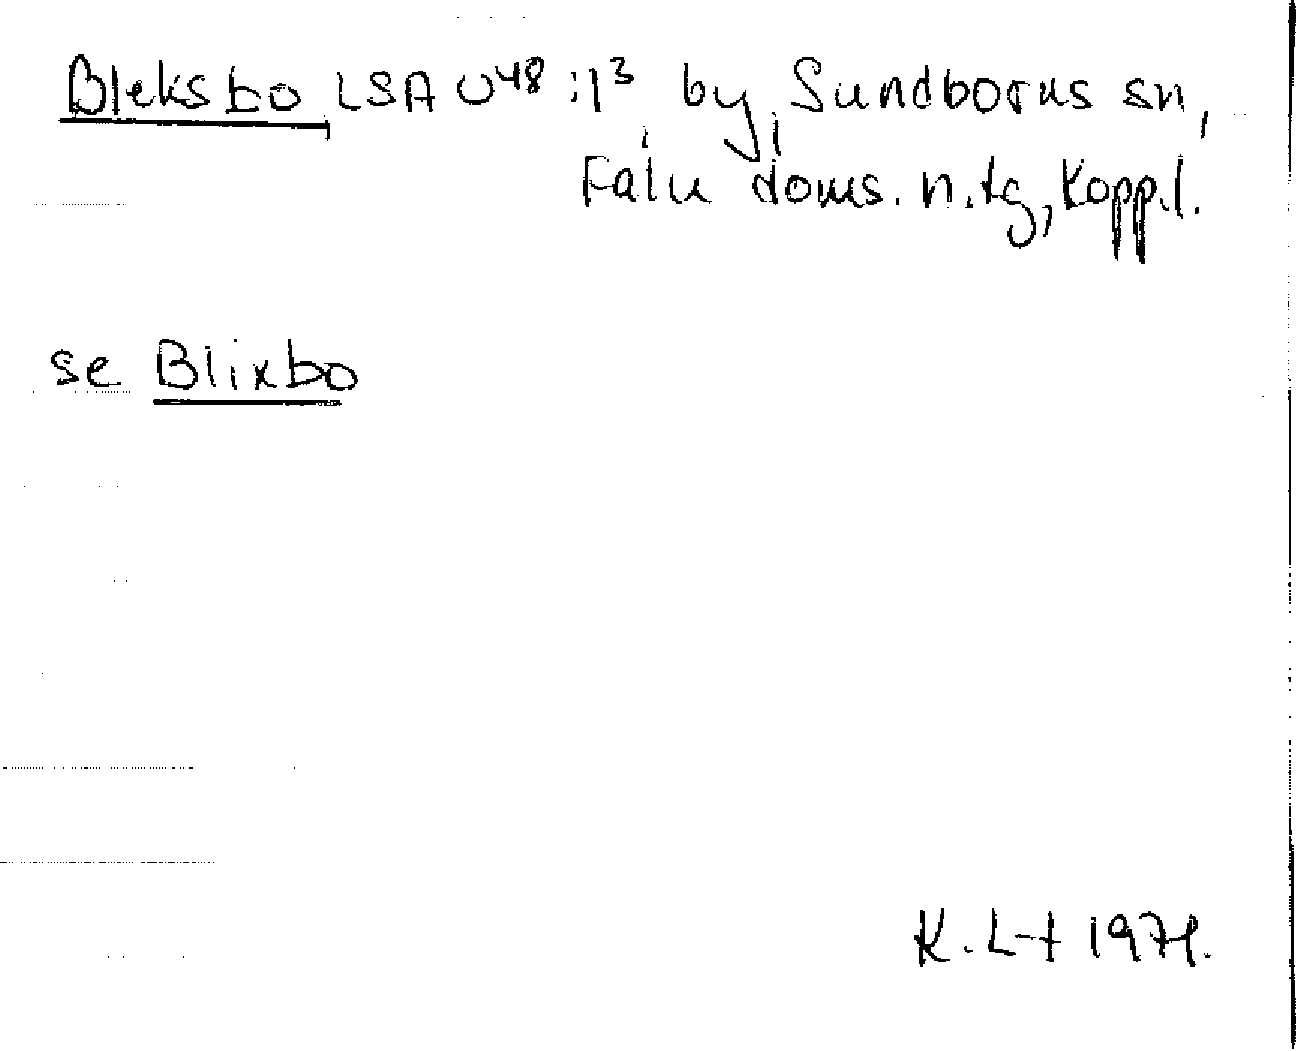 Bleksbo LSA U48:1³ by i Sundborns sn,
Falu doms. n. tg, Kopp.l.
se Blixbo
K. L-t 1971.